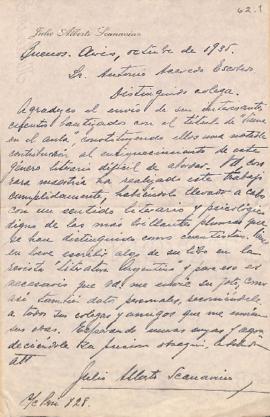 62.1
Julio Alberto Scanavino
Buenos Aires, octubre de 1935.
Sr. Antonio Acevedo Escobedo
Distinguido colega.
Agradezco el envío de sus interesantes
cuentos bautizados con el título de "Sirena
en el aula", constituyendo ellos una notable
contribución al enriquecimiento de este
género literario difícil de abordar. Ud. con
rara maestría ha realizado este trabajo
cumplidamente, habiéndolo llevado a cabo
con un sentido literario y psicológico
digno de las más brillantes plumas que
se han distinguido como cuentistas.
en breve escribir algo de su libro en la
revista literatura Argentina y para eso es
necesario que Ud. me envíe su foto, como
así también datos personales,
a todos sus colegas y amigos que me envíen
sus obras. Esperando nuevas suyas y agra-
deciéndole su obsequio, le saluda
Att
Julio Alberto Scanavino
828.